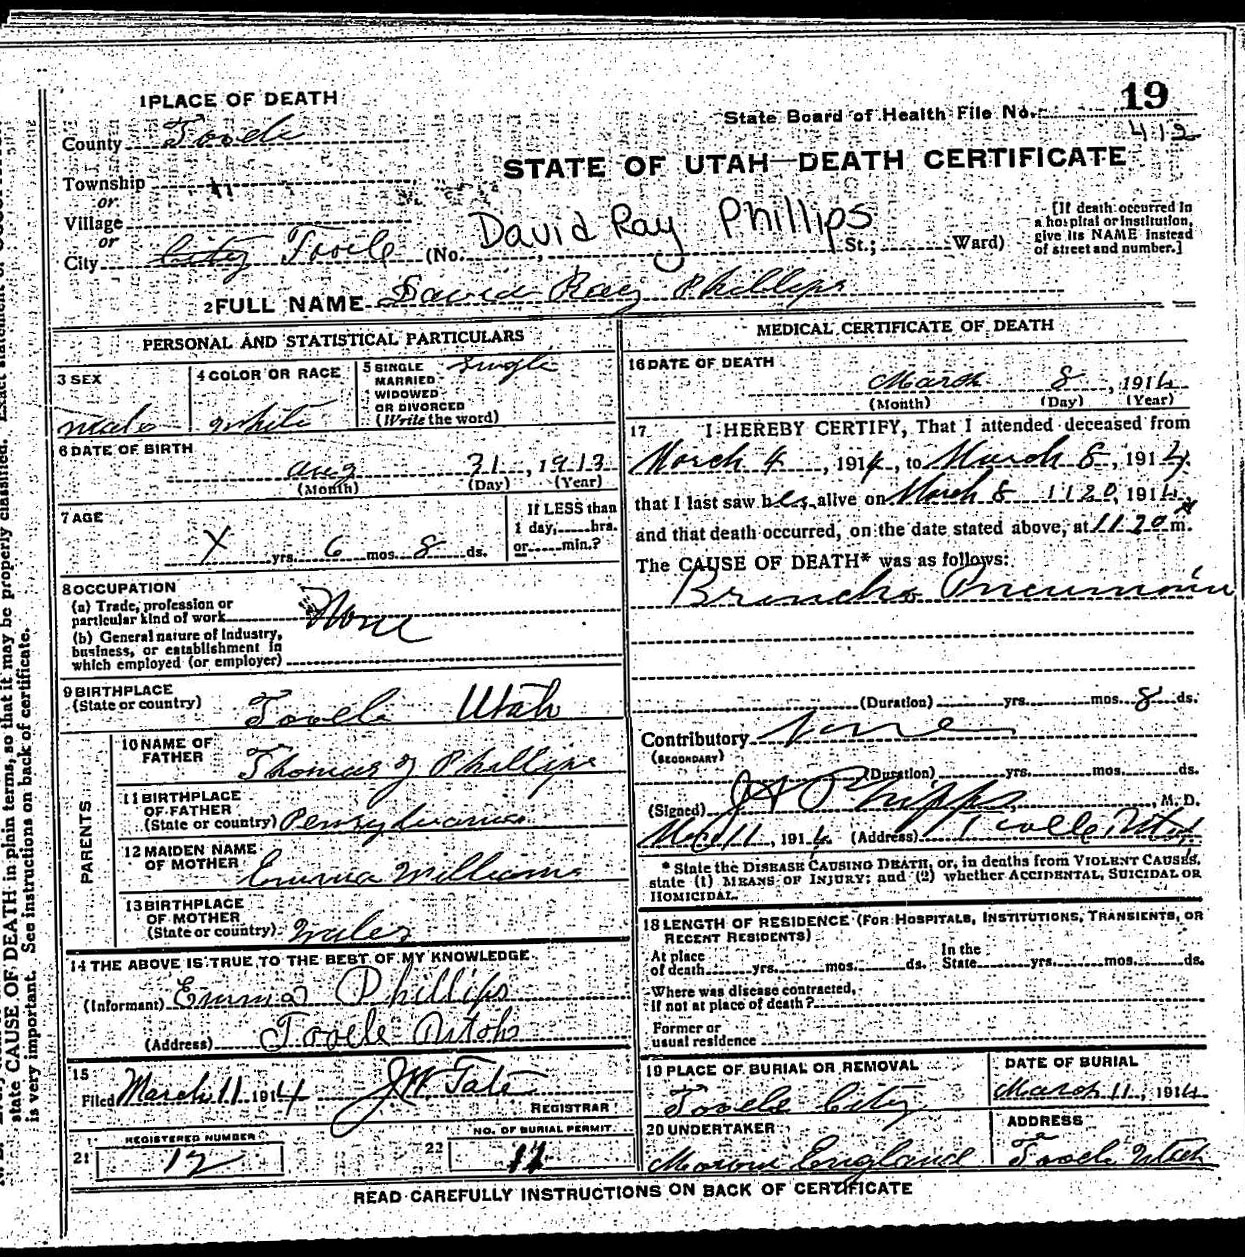 19
1 PLACE OF DEATH
State Board of Health File No.
412
County Tooele
STATE OF UTAH—DEATH CERTIFICATE
Township "
or
Village
or
City City Tooele (No. David Ray Phillips St.; Ward)
[If death occurred in a hospital or institution, give its NAME instead of street and number.]
2 FULL NAME David Ray Phillips
PERSONAL AND STATISTICAL PARTICULARS
3 SEX
male
4 COLOR OR RACE
white
5 SINGLE
MARRIED
WIDOWED
OR DIVORCED
(Write the word)
Single
6 DATE OF BIRTH
Aug 31, 1913
(Month) (Day) (Year)
7 AGE
X yrs. 6 mos. 8 ds.
If LESS than
1 day, hrs.
or min.?
8 OCCUPATION
(a) Trade, profession or
particular kind of work None
(b) General nature of Industry,
business, or establishment in
which employed (or employer)
9 BIRTHPLACE
(State or country) Tooele Utah
PARENTS
10 NAME OF
FATHER Thomas J Phillips
11 BIRTHPLACE
OF FATHER
(State or country) Pennsylvania
12 MAIDEN NAME
OF MOTHER Emma Williams
13 BIRTHPLACE
OF MOTHER
(State or country) Wales
14 THE ABOVE IS TRUE TO THE BEST OF MY KNOWLEDGE
(Informant) Emma Phillips
(Address) Tooele Utah
15
Filed March 11 1914 J W Tate
REGISTRAR
REGISTERED NUMBER
21 12
NO. OF BURIAL PERMIT
22
MEDICAL CERTIFICATE OF DEATH
16 DATE OF DEATH
March 8, 1914
(Month) (Day) (Year)
17 I HEREBY CERTIFY, That I attended deceased from
March 4, 1914, to March 8, 1914.
that I last saw h alive on March 8 1120, 1914,
and that death occurred, on the date stated above, at 1120 m.
The CAUSE OF DEATH* was as follows:
Broncho Pneumonia
(Duration) yrs. mos. 8 ds.
Contributory None
(SECONDARY)
(Duration) yrs. mos. ds.
(Signed) J H Phipps, M. D.
Mar 11, 1914 (Address) Tooele Utah
* State the DISEASE CAUSING DEATH, or, in deaths from VIOLENT CAUSES,
state (1) MEANS OF INJURY; and (2) whether ACCIDENTAL, SUICIDAL OR
HOMICIDAL.
18 LENGTH OF RESIDENCE (FOR HOSPITALS, INSTITUTIONS, TRANSIENTS, OR
RECENT RESIDENTS)
At place
of death yrs. mos. ds.
In the
State yrs. mos. ds.
Where was disease contracted,
if not at place of death?
Former or
usual residence
19 PLACE OF BURIAL OR REMOVAL
Tooele City
DATE OF BURIAL
March 11, 1914
20 UNDERTAKER
England
ADDRESS
Tooele Utah
READ CAREFULLY INSTRUCTIONS ON BACK OF CERTIFICATE
state CAUSE OF DEATH in plain terms, so that it may be properly classified.
is very important. See instructions on back of certificate.